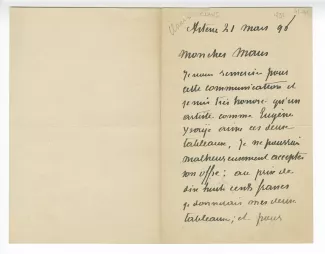 21 Mars 96
Mon cher Maus
Je vous remercie pour
cette communication et
je suis très honoré qu'un
artiste comme Eugène
Ysaye aime ces deux
tableaux. Je ne pourrai
malheureusement accepter
son offre; au prix de
dix huit cents francs
je donnerais mes deux
tableaux; et pour